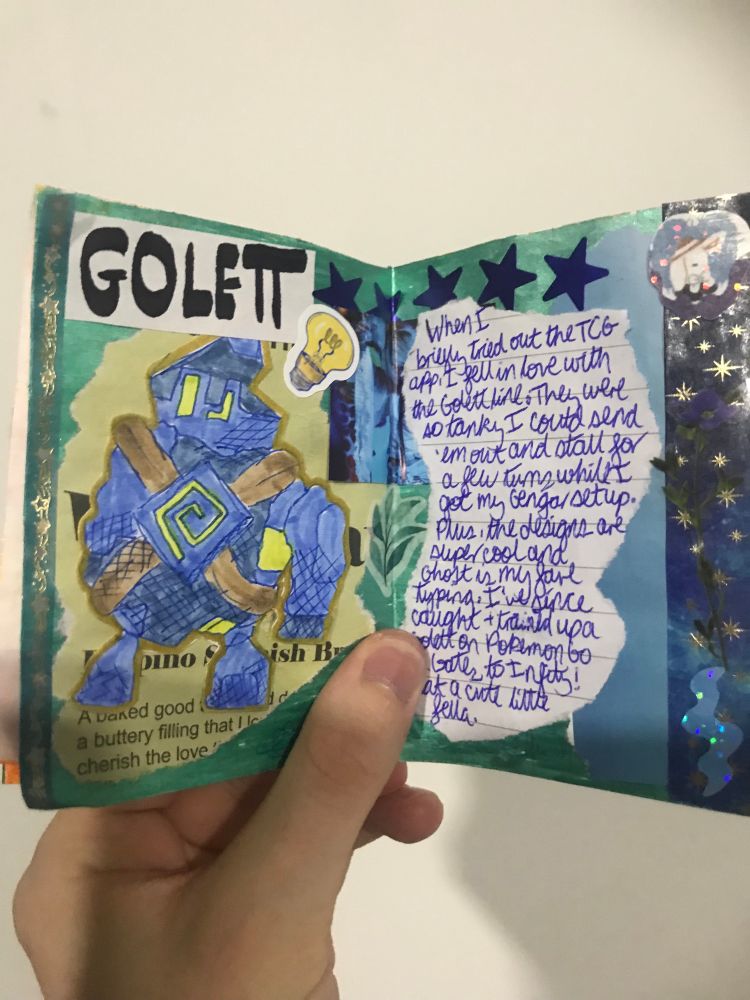 GOLETT
pino S ish Br
A baked good
a buttery filling that I
cherish the love
When I
briefly tried out the TCG
app, I fell in love with
the Golett line. They were
so tanky I could send
'em out and stall for
a few turns while I
got my Gengar setup.
Plus, the designs are
super cool and
Ghost is my fave
typing. I've since
caught + trained up a
olett on Pokemon Go
Gates to Infity!
at a cute little
fella.